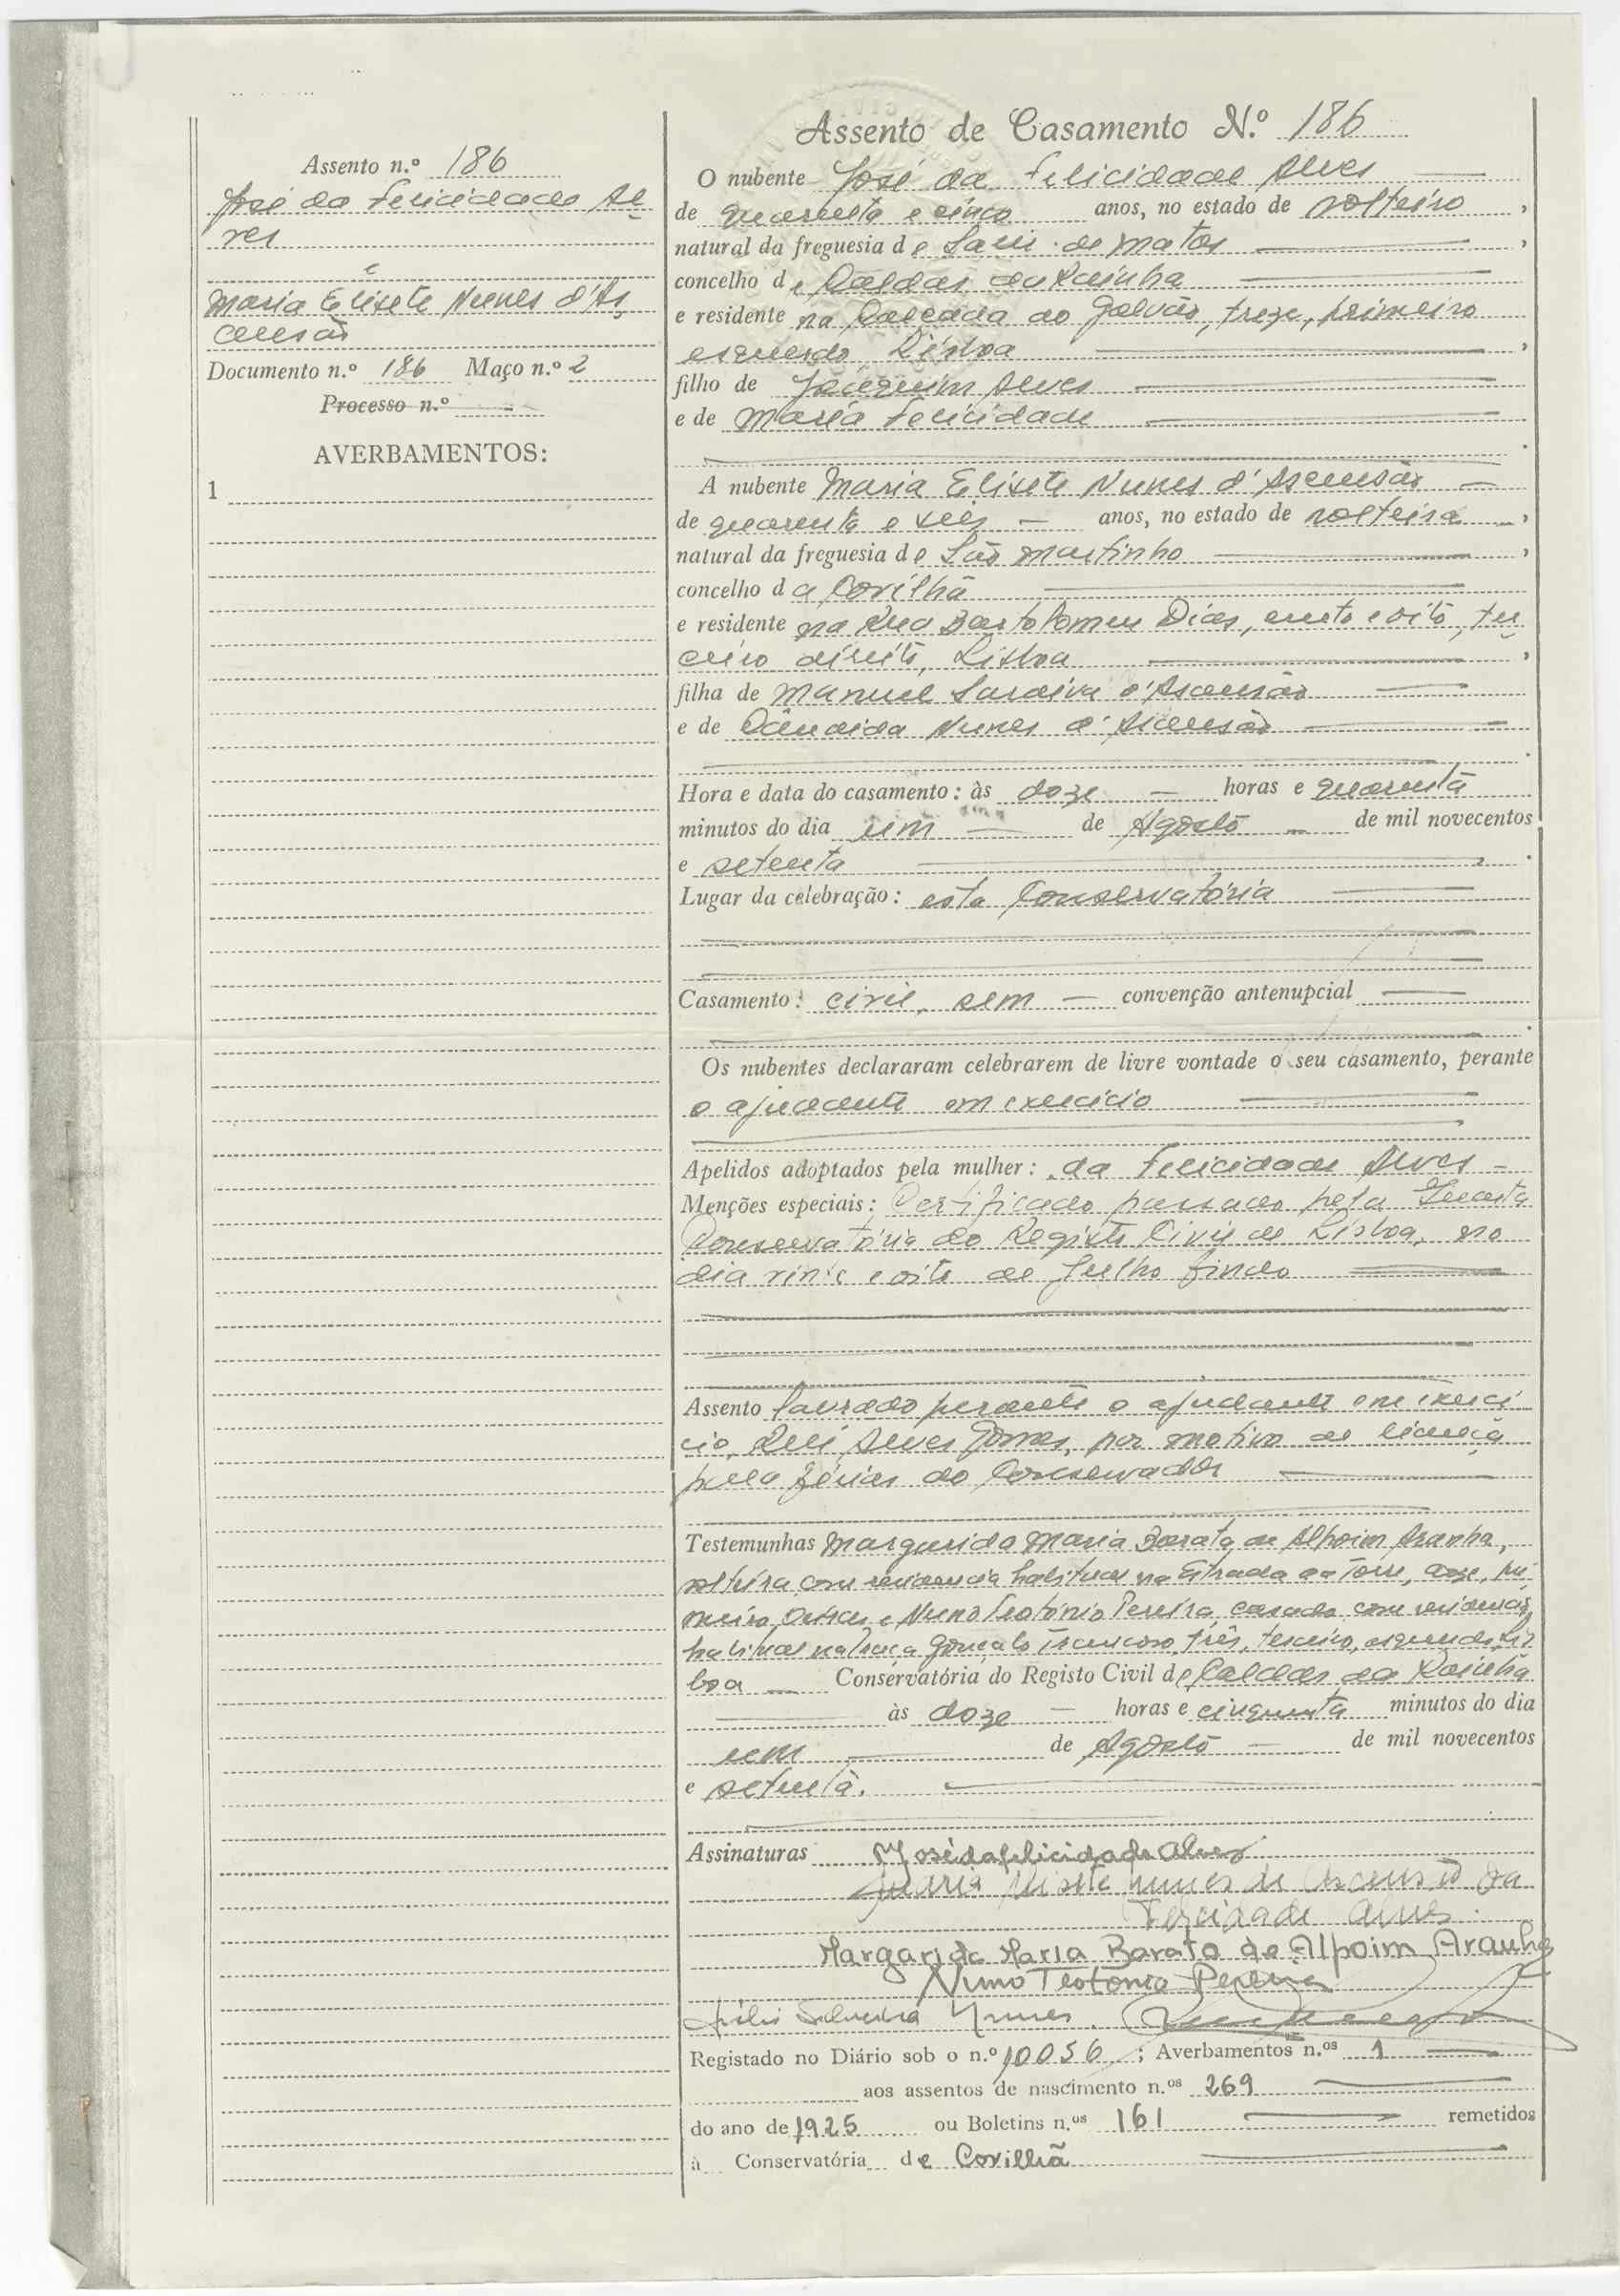 Assento n.º 186
José da Felicidade Al
ves
e
Maria Elisete Nunes d'As
censão
Documento n.º 186 Maço n.º 2
Processo n.º
AVERBAMENTOS:
1
Assento de Casamento N.º 186
O nubente José da Felicidade Alves
de quarenta e cinco anos, no estado de solteiro,
natural da freguesia de Salir de Matos,
concelho de Caldas da Rainha
e residente na Calçada do Galvão, treze, primeiro
esquerdo, Lisboa,
filho de Joaquim Alves
e de Maria Felicidade
.
A nubente Maria Elisete Nunes d'Ascensão
de quarenta e seis anos, no estado de solteira,
natural da freguesia de São Martinho,
concelho da Covilhã
e residente na Rua Bartolomeu Dias, cento e oito, ter
ceiro direito, Lisboa,
filha de Manuel Saraiva d'Ascensão
e de Cândida Nunes d'Ascensão
.
Hora e data do casamento: às doze horas e quarenta
minutos do dia um de Agosto de mil novecentos
e setenta.
Lugar da celebração: esta Conservatória
Casamento: civil, sem convenção antenupcial
.
Os nubentes declararam celebrarem de livre vontade o seu casamento, perante
o ajudante em exercício
Apelidos adoptados pela mulher: da Felicidade Alves
Menções especiais: Certificado passado pela Quarta
Conservatória do Registo Civil de Lisboa, no
dia vinte e oito de Julho findo
Assento lavrado perante o ajudante em exercí
cio, Rui Alves Gomes, por motivo de licença
para férias do Conservador
Testemunhas Margarida Maria Barata de Alpoim Aranha,
solteira com residencia habitual na Estrada da Torre, doze, pri
meiro, Oeiras e Nuno Teotónio Pereira, casado com residencia
habitual na Praça Gonçalo Trancoso, três, terceiro, esquerdo, Lis
boa Conservatória do Registo Civil de Caldas da Rainha
às doze horas e cinquenta minutos do dia
um de Agosto de mil novecentos
e setenta.
Assinaturas José da felicidade Alves
Maria Elisete Nunes de Ascensão da
Felicidade Alves.
Margarida Maria Barata de Alpoim Aranha
Nuno Teotónio Pereira
Nunes.
Registado no Diário sob o n.º 10056; Averbamentos n.os 1
aos assentos de nascimento n.os 269
do ano de 1925 ou Boletins n.os 161 remetidos
à Conservatória de Covilhã